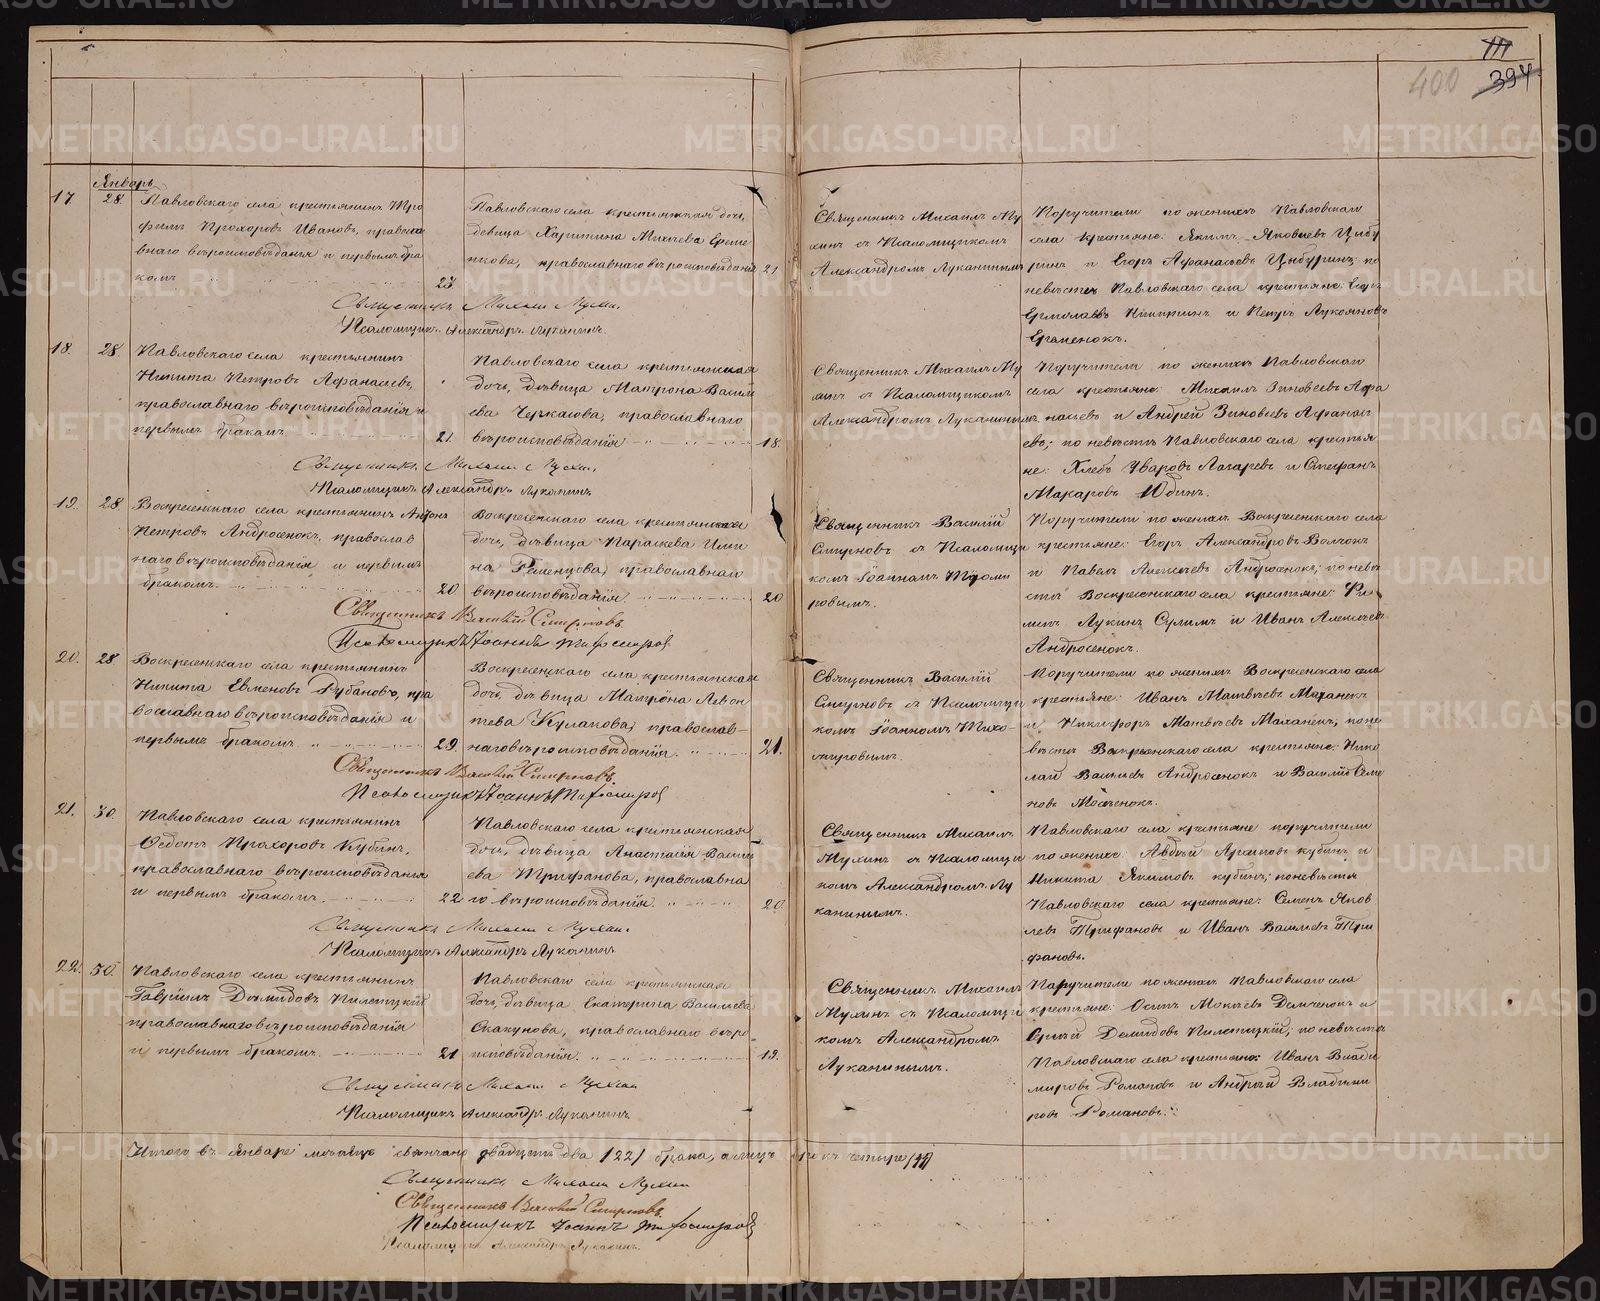 111
400 394
Январь
17. 28. Павловскаго села крестьянинъ Тро
фимъ Прохоровъ Ивановъ, правосла
внаго вѣроисповѣданія и первымъ бра
комъ 23
Павловскаго села крестьянская дочь,
девица Харитина Михеева Ереме
нкова, православнаго вѣроисповѣданія 21
Священникъ Михаилъ Му
хинъ съ Псаломщикомъ
Александромъ Луканинымъ
Поручители по женихѣ Павловскаго
села крестьяне: Якимъ Яковлевъ Цыбу
ринъ и Егоръ Афанасьевъ Цыбуринъ; по
невѣстѣ Павловскаго села крестьяне:
Ермолаевъ и Петръ Лукояновъ
Еременокъ.
Священникъ Михаилъ Мухинъ.
Псаломщикъ Александръ Луканинъ.
18. 28. Павловскаго села крестьянинъ
Никита Петровъ Афанасьевъ,
православнаго вѣроисповѣданія и
первымъ бракомъ 21.
Павловскаго села крестьянская
дочь, дѣвица Матрона Василь
ева Черкасова, православнаго
вѣроисповѣданія 18.
Священникъ Михаилъ Му
хинъ съ Псаломщикомъ
Александромъ Луканинымъ
Поручители по женихѣ Павловскаго
села крестьяне: Михаилъ Зиновьевъ Афа
насьевъ и Андрей Зиновьевъ Афанась
евъ; по невѣстѣ Павловскаго села крестья
не: Глебъ Уваровъ Лагаревъ и Стефанъ
Макаровъ Юдинъ.
Священникъ Михаилъ Мухинъ.
Псаломщикъ Александръ Луканинъ
19. 28. Воскресенскаго села крестьянинъ Антонъ
Петровъ Андросенокъ, православ
наго вѣроисповѣданія и первымъ
бракомъ. 20.
Воскресенскаго села крестьянская
дочь, дѣвица Параскева Ильи
на православнаго
вѣроисповѣданія 20
Священникъ Василій
Смирновъ съ Псаломщи
комъ Іоанномъ Тихоми
ровымъ.
Поручители по женихѣ Воскресенскаго села
крестьяне: Егоръ Александровъ Волчокъ
и Павелъ Алексѣевъ Андросенокъ; по невѣ
стѣ Воскресенскаго села крестьяне: Фи
липъ Лукинъ Сулимъ и Иванъ Алексѣевъ
Андросенокъ.
Священникъ Василій Смирновъ
Псаломщикъ Іоаннъ Тихомировъ
20. 28 Воскресенскаго села крестьянинъ
Никита Евменовъ Рубановъ, пра
вославнаго вѣроисповѣданія и
первымъ бракомъ 29.
Воскресенскаго села крестьянская
дочь, дѣвица Матрона Левон
тьева Кулакова, православ-
наго вѣроисповѣданія. 21.
Священникъ Василій
Смирновъ съ Псаломщи
комъ Іоанномъ Тихо-
мировымъ.
Поручители по женихѣ Воскресенскаго села
крестьяне: Иванъ Матвѣевъ Маханекъ
и Никифоръ Матвѣевъ Маханекъ, по не
вѣстѣ Воскресенскаго села крестьяне: Нико
лай Васильевъ Андросенокъ и Василій Семе
новъ Мосѣенокъ.
Священникъ Василій Смирновъ.
Псаломщикъ Іоаннъ Тихомировъ
21. 30. Павловскаго села крестьянинъ
Федотъ Прохоровъ Кубинъ,
православнаго вѣроисповѣданія
и первымъ бракомъ. 22
Павловскаго села крестьянская
дочь, дѣвица Анастасія Василь
ева Трифанова, православна
го вѣроисповѣданія. 20.
Священникъ Михаилъ
Мухинъ съ Псаломщи
комъ Александромъ Лу
канинымъ.
Павловскаго села крестьяне поручители
по женихѣ: Авдѣй Архиповъ Кубинъ и
Никита Якимовъ Кубинъ; по невѣстѣ
Павловскаго села крестьяне: Семенъ Яков
левъ Трифановъ и Иванъ Васильевъ Три
фановъ.
Священникъ Михаилъ Мухинъ.
Псаломщикъ Александръ Луканинъ
22. 30. Павловскаго села крестьянинъ
Гавріилъ Демидовъ Пилепицкій
православнаго вѣроисповѣданія
и первымъ бракомъ. 21
Павловскаго села крестьянская
дочь, дѣвица Екатерина Васильева
Скакунова, православнаго вѣро
исповѣданія. 19.
Священникъ Михаилъ
Мухинъ съ Псаломщи
комъ Александромъ
Луканинымъ.
Поручители по женихѣ Павловскаго села
крестьяне: Осипъ Мокѣевъ Демченокъ и
Сергѣй Демидовъ Пилепицкій; по невѣстѣ
Павловскаго села крестьяне: Иванъ Влади
мировъ Романовъ и Андрей Владими
ровъ Романовъ.
Священникъ Михаилъ Мухинъ
Псаломщикъ Александръ Луканинъ
Итого въ Январѣ мѣсяцѣ свѣнчано двадцать два /22/ брака, а лицъ сорокъ четыре /44/
Священникъ Михаилъ Мухинъ
Священникъ Василій Смирновъ.
Псаломщикъ Іоаннъ Тихомировъ
Псаломщикъ Александръ Луканинъ.
METRIKI.GASO-URAL.RU